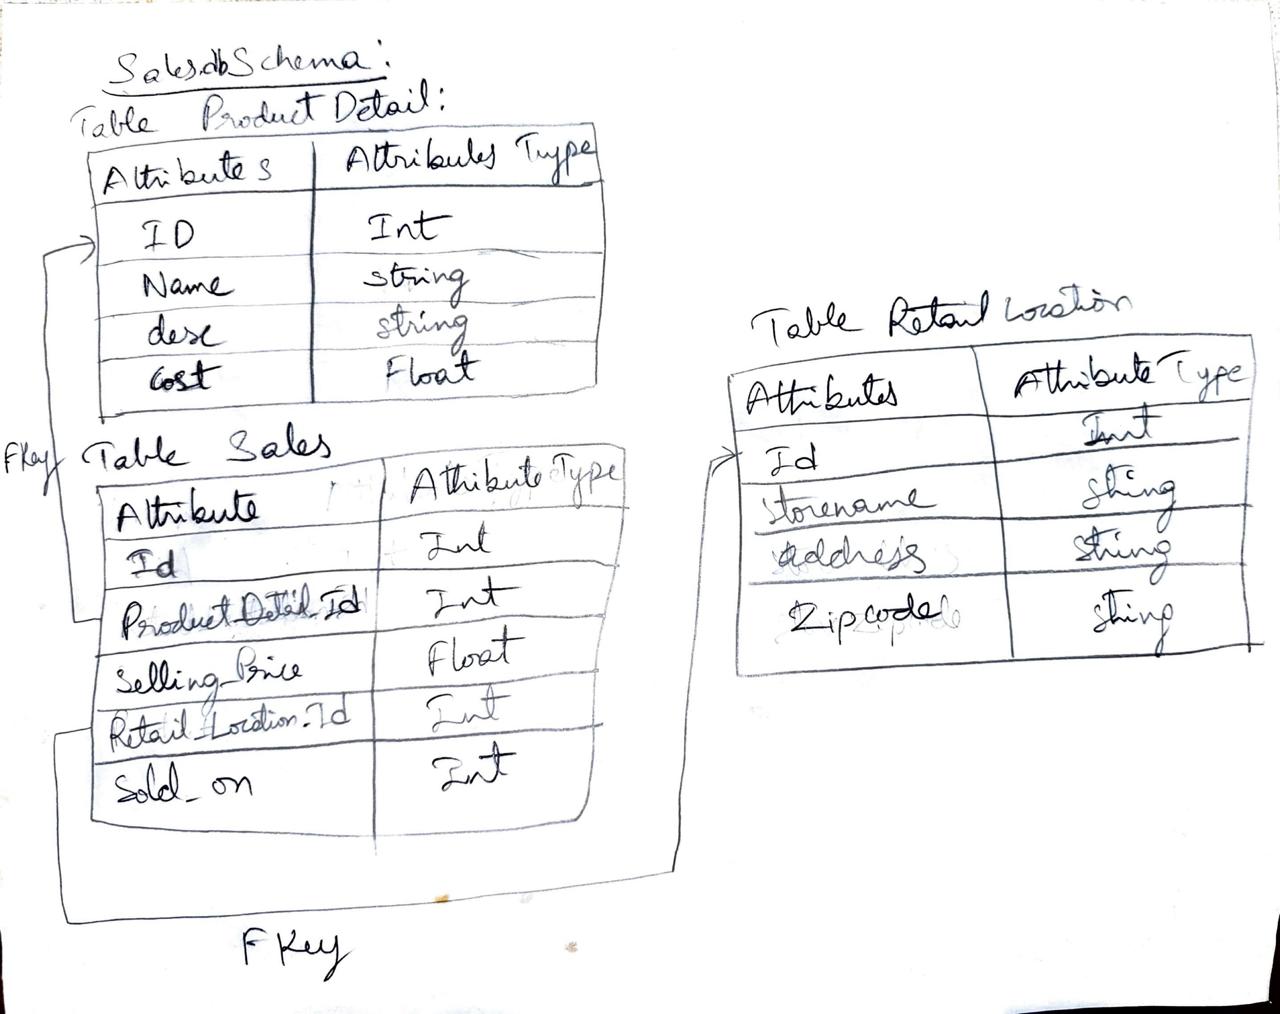 Sales.db Schema:
Table Product Detail:
Attributes Attributes Type
ID Int
Name string
desc string
Cost Float
FKey
Table Sales
Attribute Attribute Type
Id Int
Product_Detail_Id Int
Selling_Price Float
Retail_Location_Id Int
Sold_on Int
FKey
Table Retail Location
Attributes Attribute Type
Id Int
Storename string
Address string
Zipcode string